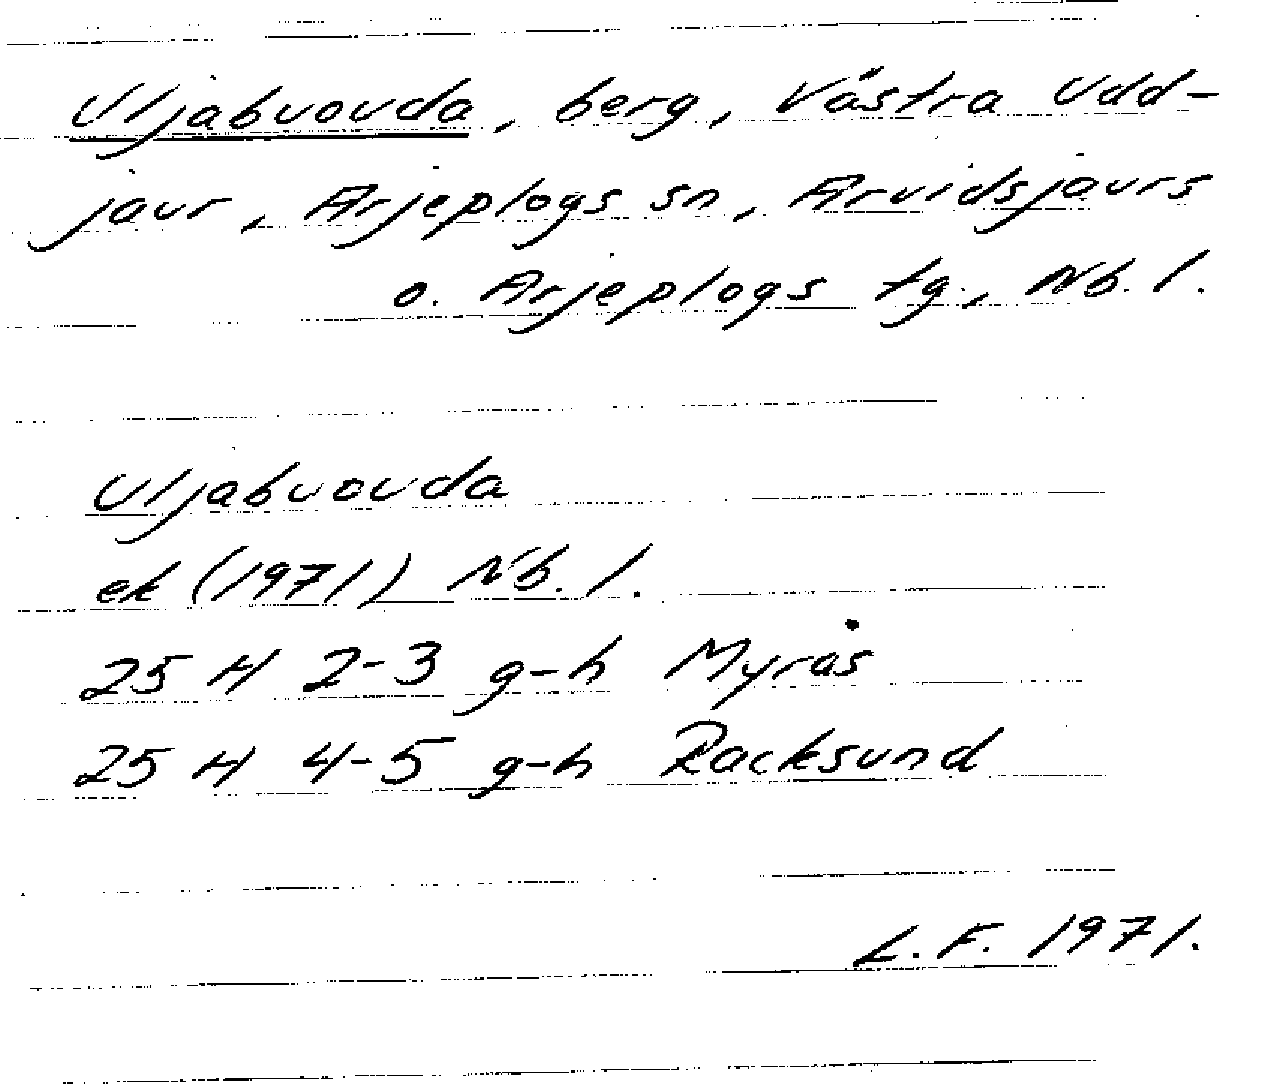 Uljabuouda, berg, Västra Udd-
jaur, Arjeplogs sn, Arvidsjaurs
o. Arjeplogs tg., Nb. l.
Uljabuouda
ek (1971) Nb. l.
25 H 2-3 g-h Myrås
25 H 4-5 g-h Racksund
L. F. 1971.